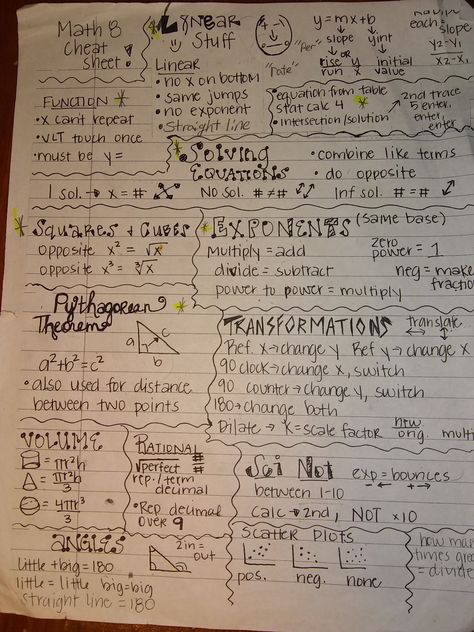 Math 8
Cheat
Sheet!
Linear
Stuff
Linear
• no x on bottom
• same jumps
• no exponent
• Straight line
+
-
0
"Per"
"Rate"
y=mx+b
slope
yint
or
rise y
run x
initial
value
each=
slope
y2-y1
x2-x1
• equation from table
stat calc 4
• intersection/solution
2nd trace
5 enter,
enter,
enter
FUNCTION
• x can't repeat
• VLT touch once
• must be y=
Solving
Equations
• combine like terms
• do opposite
1 sol. → x = #
No sol. # ≠ #
Inf sol. # = #
Squares & Cubes
opposite x² = √x
opposite x³ = ∛x
EXPONENTS (same base)
multiply = add
divide = subtract
power to power = multiply
zero
power = 1
neg = make
fraction
Pythagorean
Theorem
a
c
b
a²+b²=c²
• also used for distance
between two points
TRANSFORMATIONS
translate
Ref x → change y Ref y → change x
90 clock → change x, switch
90 counter → change y, switch
180 → change both
Dilate → K = scale factor new
orig.
VOLUME
= πr²h
= πr²h
3
= 4πr³
3
Rational
√perfect #
#
rep./term
decimal
• Rep decimal
over 9
Sci Not
exp = bounces
← - + →
between 1-10
calc → 2nd, NOT x10
angles
little + big = 180
little = little big = big
straight line = 180
2 in =
out
Scatter Plots
pos.
neg.
none
how many
times
= divide